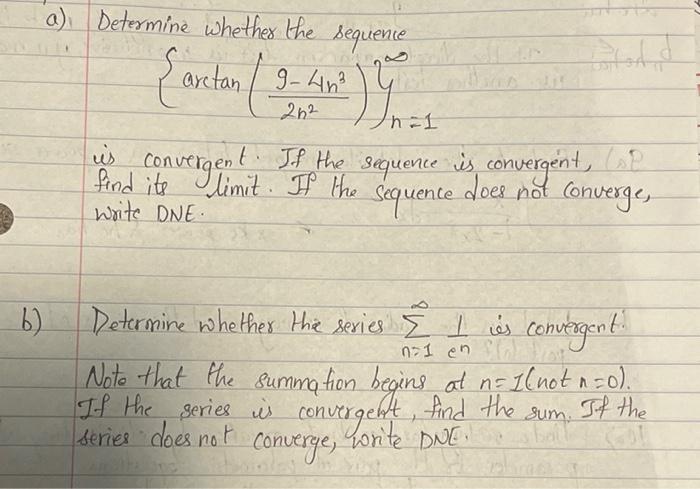 a) Determine whether the sequence
{ arctan ( (9-4n³)/(2n²) ) }_{n=1}^∞
is convergent. If the sequence is convergent,
find its limit. If the sequence does not converge,
write DNE.
b) Determine whether the series ∑_{n=1}^∞ 1/eⁿ is convergent.
Note that the summation begins at n=1(not n=0).
If the series is convergent, find the sum. If the
series does not converge, write DNE.